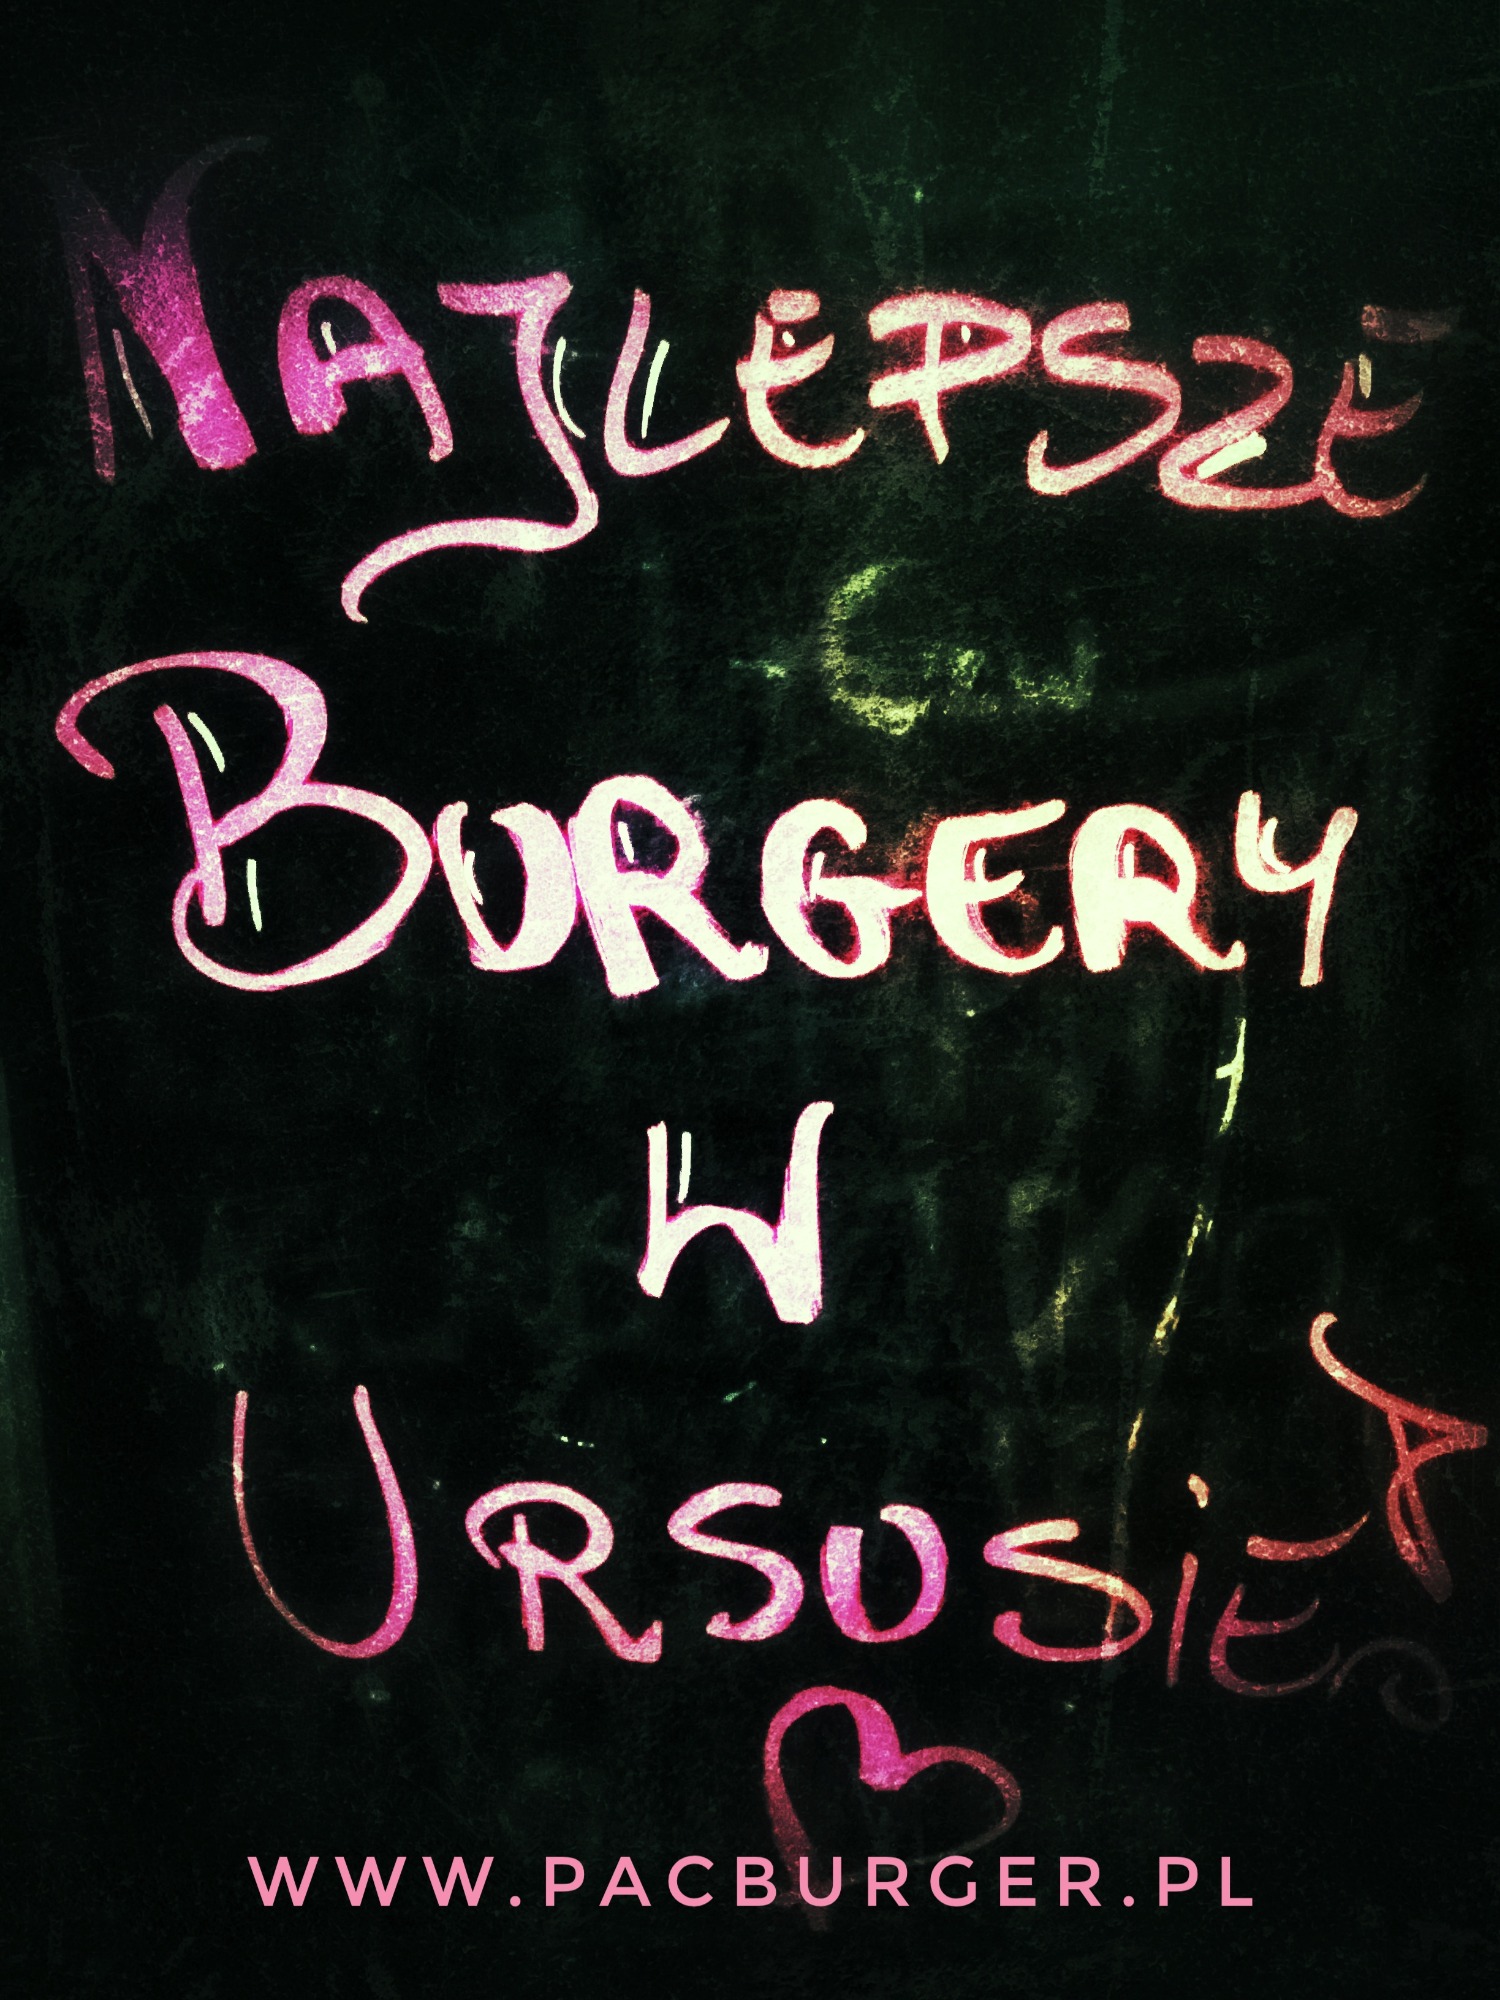 NAJLEPSZE
BURGERY
W
URSUSiE
WWW.PACBURGER.PL